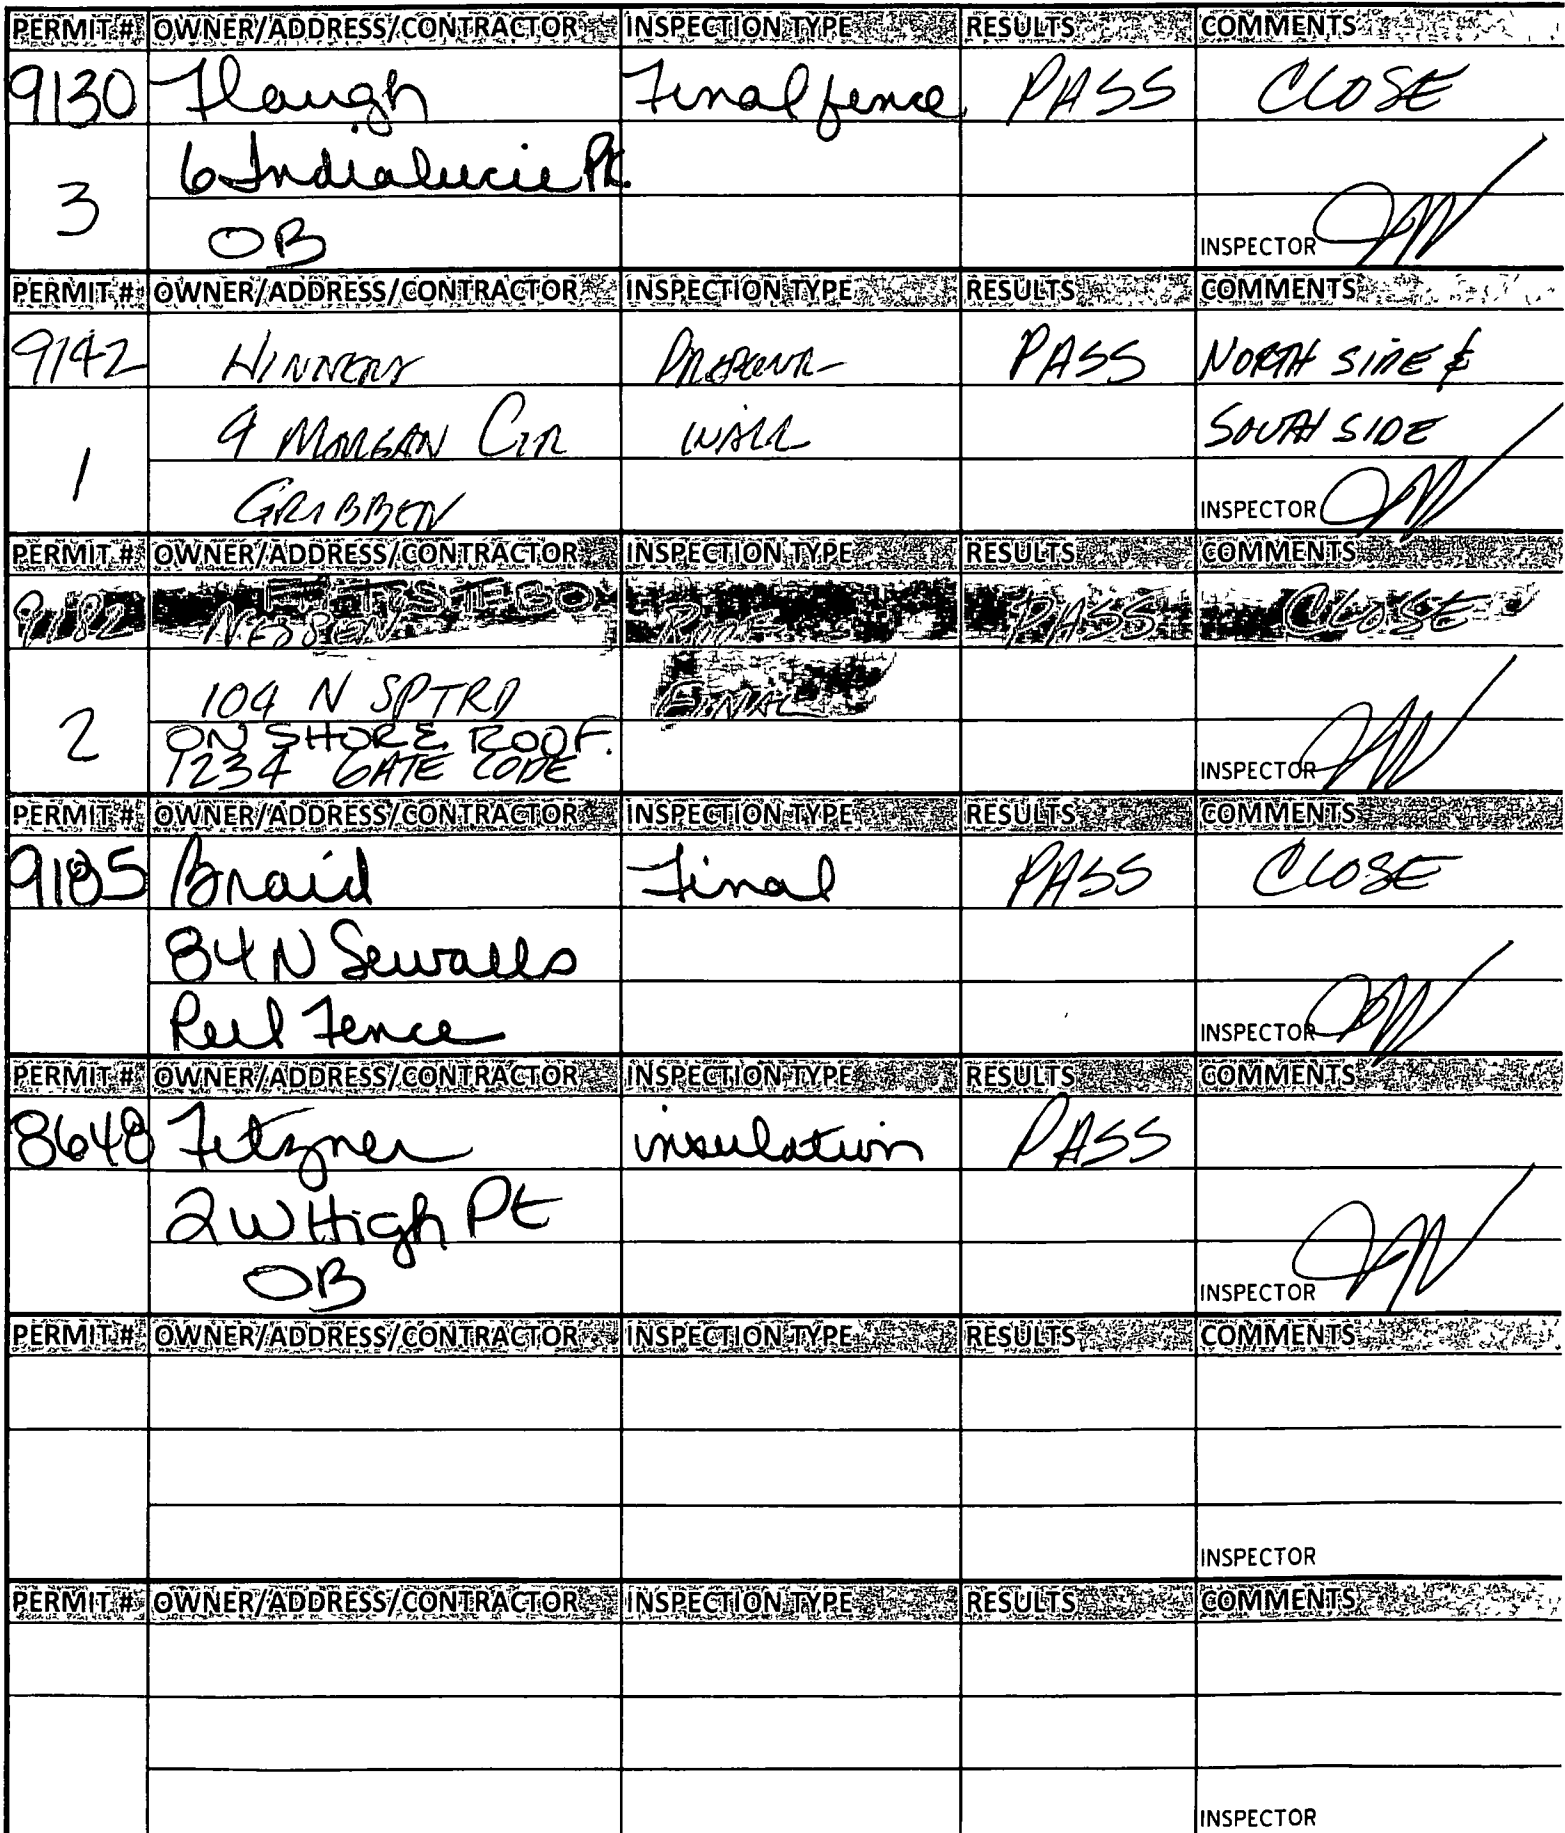 PERMIT # OWNER/ADDRESS/CONTRACTOR INSPECTION TYPE RESULTS COMMENTS
9130 Flaugh Final fence PASS CLOSE
6 Indialucie Pt.
3
OB
INSPECTOR
PERMIT # OWNER/ADDRESS/CONTRACTOR INSPECTION TYPE RESULTS COMMENTS
9142 PASS NORTH SIDE &
9 MORGAN CIR WALL SOUTH SIDE
1
GRIBBEN
INSPECTOR
PERMIT # OWNER/ADDRESS/CONTRACTOR INSPECTION TYPE RESULTS COMMENTS
9182 PASS CLOSE
104 N SPTRD FINAL
2
ON SHORE ROOF.
1234 GATE CODE
INSPECTOR
PERMIT # OWNER/ADDRESS/CONTRACTOR INSPECTION TYPE RESULTS COMMENTS
9185 Braid Final PASS CLOSE
84 N Sewalls
Reel Fence
INSPECTOR
PERMIT # OWNER/ADDRESS/CONTRACTOR INSPECTION TYPE RESULTS COMMENTS
8648 Fetzner insulation PASS
2 W High Pt
OB
INSPECTOR
PERMIT # OWNER/ADDRESS/CONTRACTOR INSPECTION TYPE RESULTS COMMENTS
INSPECTOR
PERMIT # OWNER/ADDRESS/CONTRACTOR INSPECTION TYPE RESULTS COMMENTS
INSPECTOR